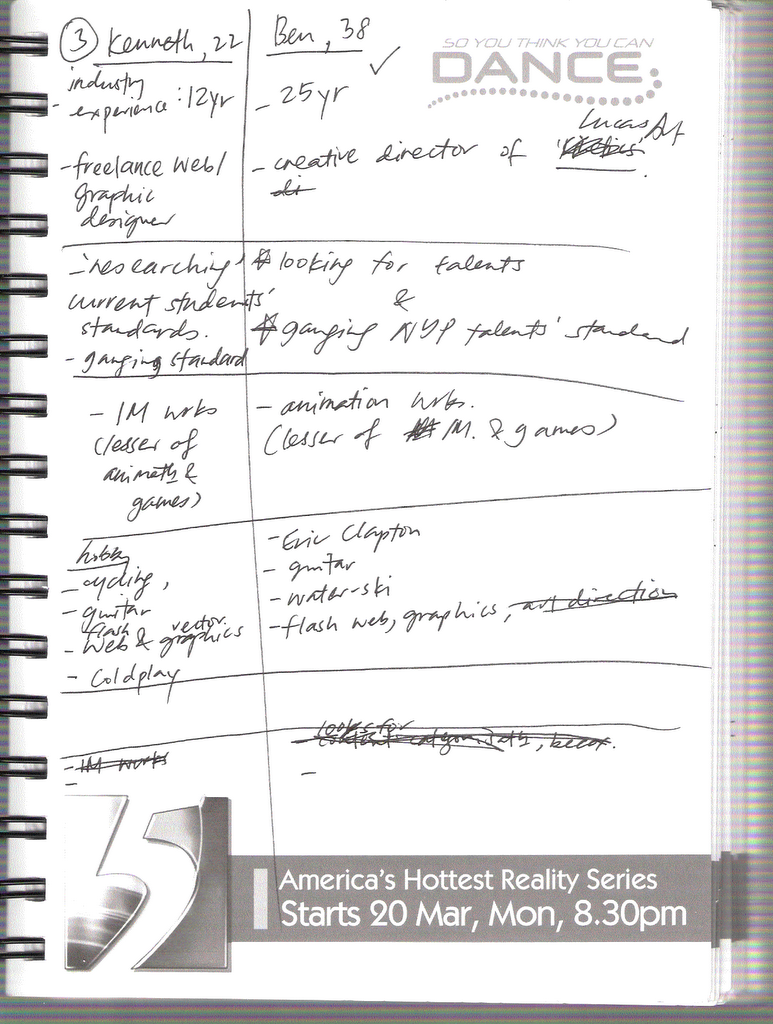 ③ Kenneth, 22
industry
- experience: 12yr
- freelance web/
graphic
designer
- 'researching'
current students'
standards.
- ganging standard
- IM wrks
(lesser of
animatn &
games)
hobby
- cycling,
- guitar
flash vector
- web & graphics
- Coldplay
- IM works
-
Ben, 38
✓
- 25yr
- creative director of Lucas Art.
di
looking for talents
&
ganging NYP talents' standard
- animation wrks.
(lesser of IM. & games)
- Eric Clapton
- guitar
- water-ski
- flash web, graphics, art direction
looks for
-
SO YOU THINK YOU CAN
DANCE
5
America's Hottest Reality Series
Starts 20 Mar, Mon, 8.30pm